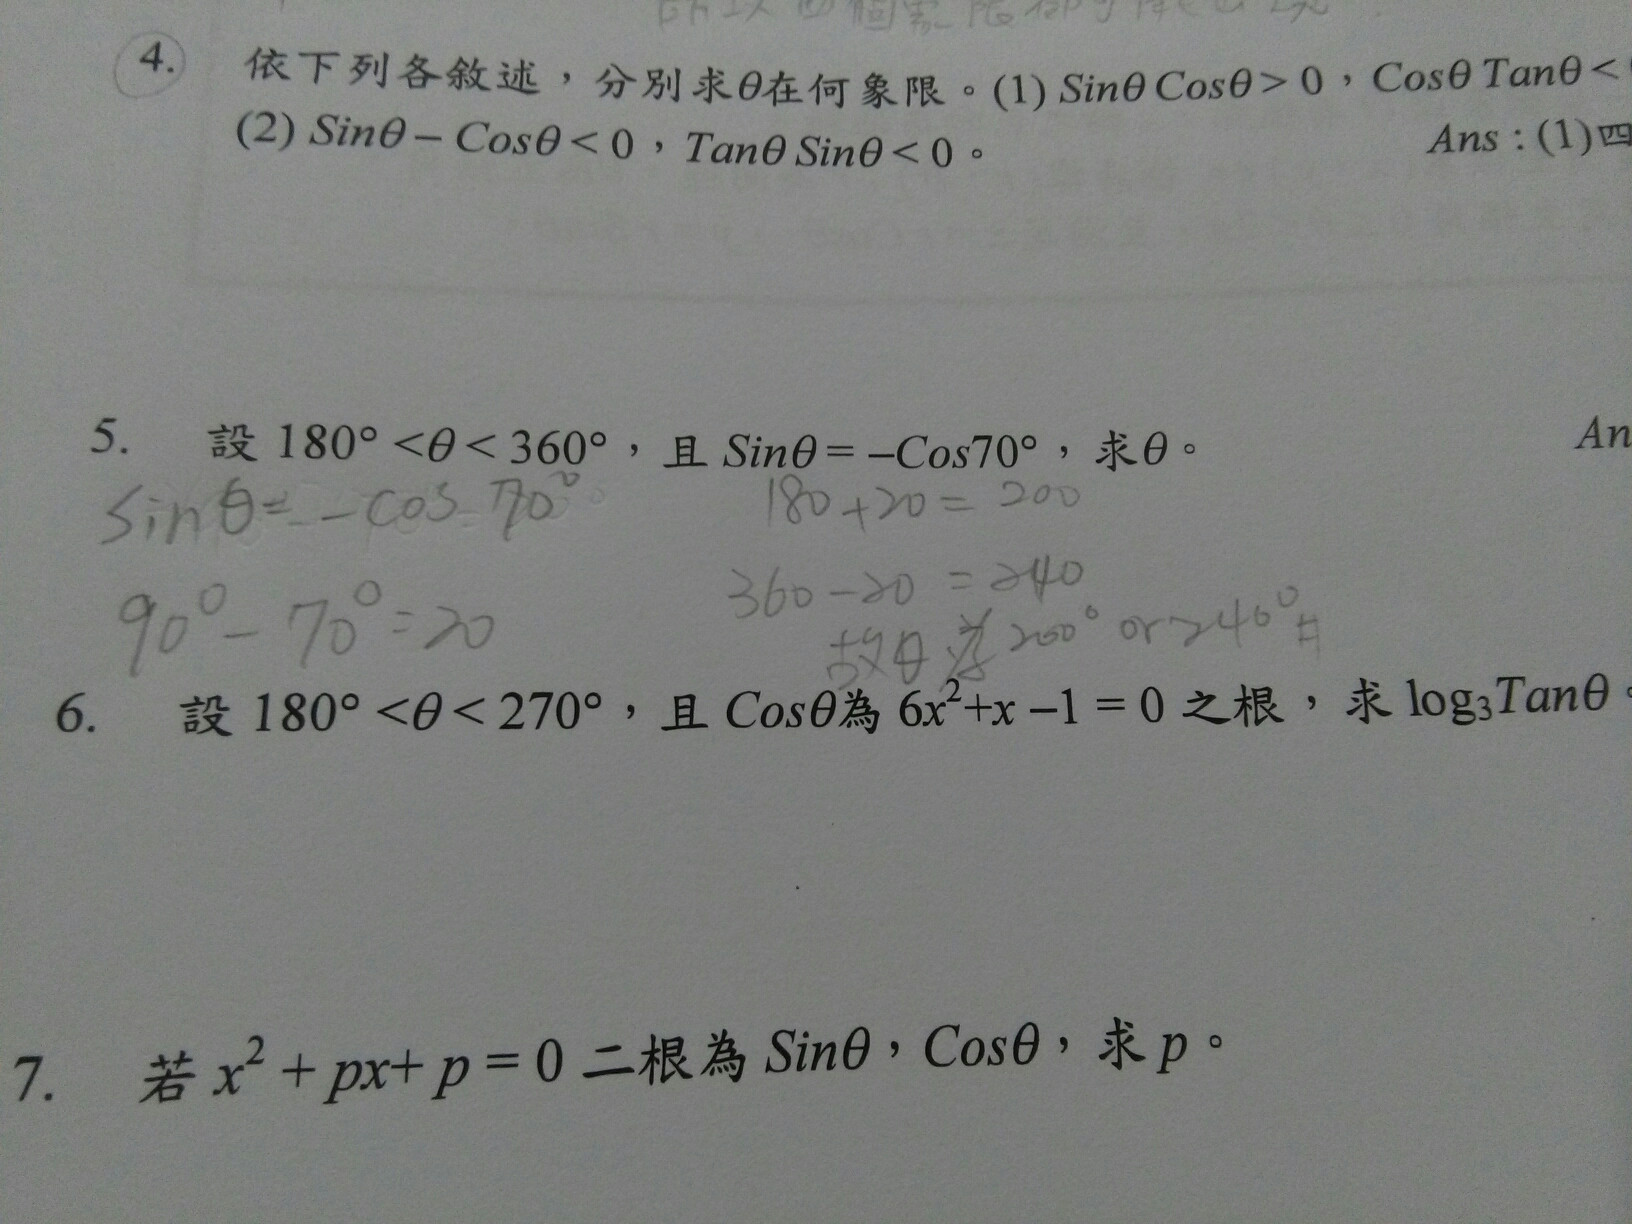 4. 依下列各敘述，分別求θ在何象限。(1) Sinθ Cosθ > 0，Cosθ Tanθ <
(2) Sinθ – Cosθ < 0，Tanθ Sinθ < 0。 Ans : (1)四
5. 設 180° <θ < 360°，且 Sinθ = –Cos70°，求θ。 An
sinθ = -cos 70° 180+20 = 200
90° - 70° = 20 360-20 = 240
故θ為 200° or 240° #
6. 設 180° <θ < 270°，且 Cosθ為 6x²+x –1 = 0 之根，求 log₃Tanθ。
7. 若 x² + px+ p = 0 二根為 Sinθ，Cosθ，求 p。